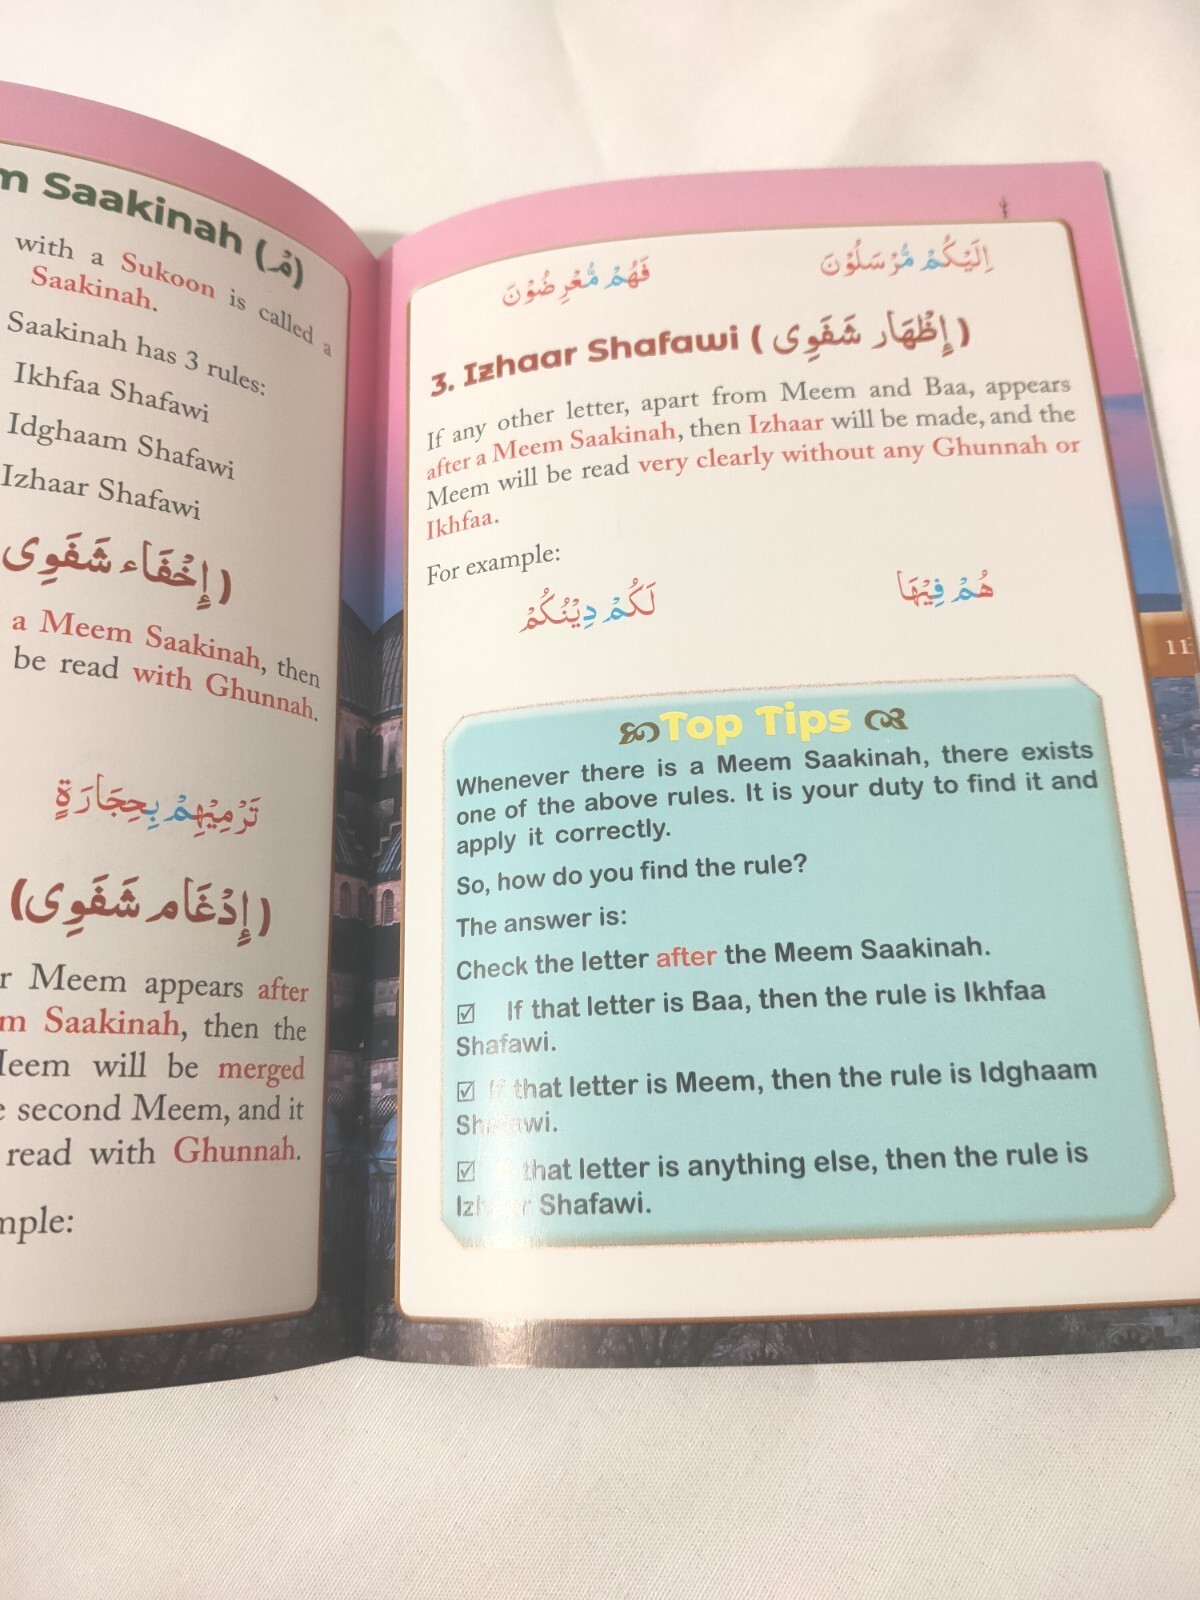 m Saakinah (مْ)
with a Sukoon is called a
Saakinah.
Saakinah has 3 rules:
Ikhfaa Shafawi
Idghaam Shafawi
Izhaar Shafawi
(إِخْفَاء شَفَوِى
a Meem Saakinah, then
be read with Ghunnah.
تَرْمِيْهِمْ بِحِجَارَةٍ
(إِدْغَام شَفَوِى)
r Meem appears after
m Saakinah, then the
Meem will be merged
e second Meem, and it
read with Ghunnah.
mple:
اِلَيْكُمْ مُّرْسَلُوْنَ فَهُمْ مُّعْرِضُوْنَ
3. Izhaar Shafawi (إِظْهَار شَفَوِى)
If any other letter, apart from Meem and Baa, appears
after a Meem Saakinah, then Izhaar will be made, and the
Meem will be read very clearly without any Ghunnah or
Ikhfaa.
For example:
هُمْ فِيْهَا لَكُمْ دِيْنُكُمْ
11
Top Tips
Whenever there is a Meem Saakinah, there exists
one of the above rules. It is your duty to find it and
apply it correctly.
So, how do you find the rule?
The answer is:
Check the letter after the Meem Saakinah.
☑ If that letter is Baa, then the rule is Ikhfaa
Shafawi.
☑ If that letter is Meem, then the rule is Idghaam
Shafawi.
☑ If that letter is anything else, then the rule is
Izhaar Shafawi.